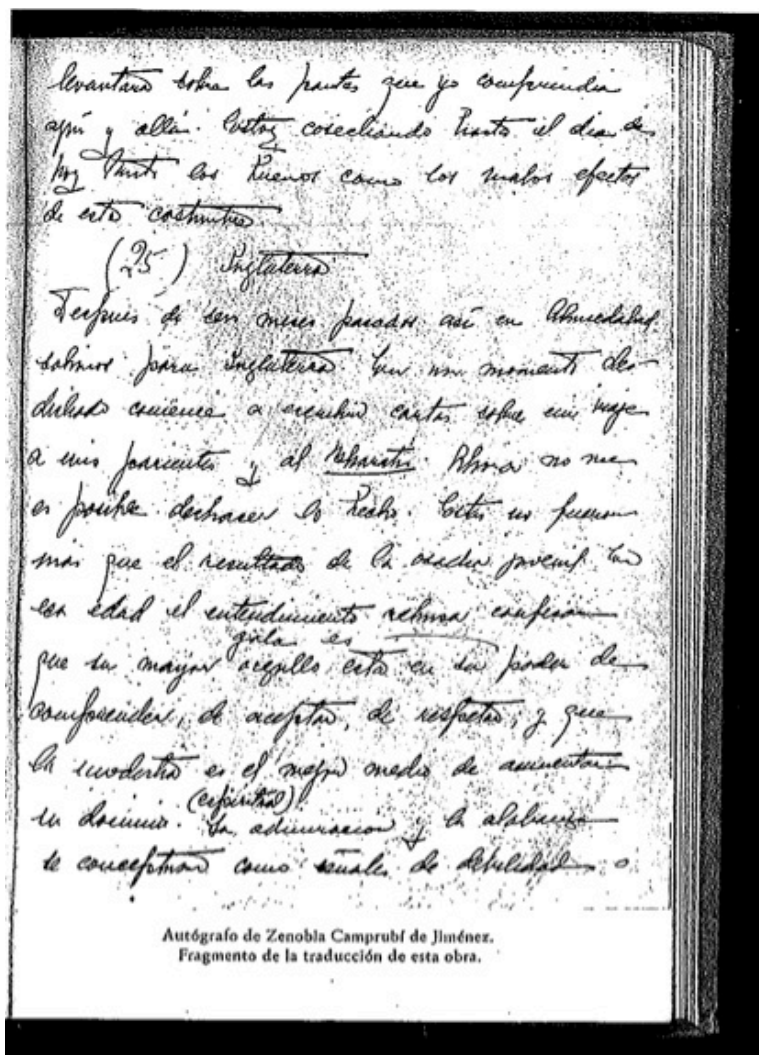 levantara sobre las partes que yo comprendia
aquí y allá. Estoy cosechando hasta el dia de
hoy tanto los buenos como los malos efectos
de esta costumbre.
(25) Inglaterra
Después de seis meses pasados así en Ahmedabad
salimos para Inglaterra. En un momento des-
dichado comence a escribir cartas sobre mi viaje
a mis parientes y al Bharati. Ahora no me
es posible deshacer lo hecho. Estas no fueron
más que el resultado de la osadia juvenil. En
esa edad el entendimiento rehusa confesar
que su mayor gala es
orgullo está en su poder de
comprender, de aceptar, de respetar, y que
la modestia es el mejor medio de aumentar
su dominio. (espiritual) La admiracion y la alabanza
se conceptuan como señales de debilidad o
Autógrafo de Zenobia Camprubí de Jiménez.
Fragmento de la traducción de esta obra.